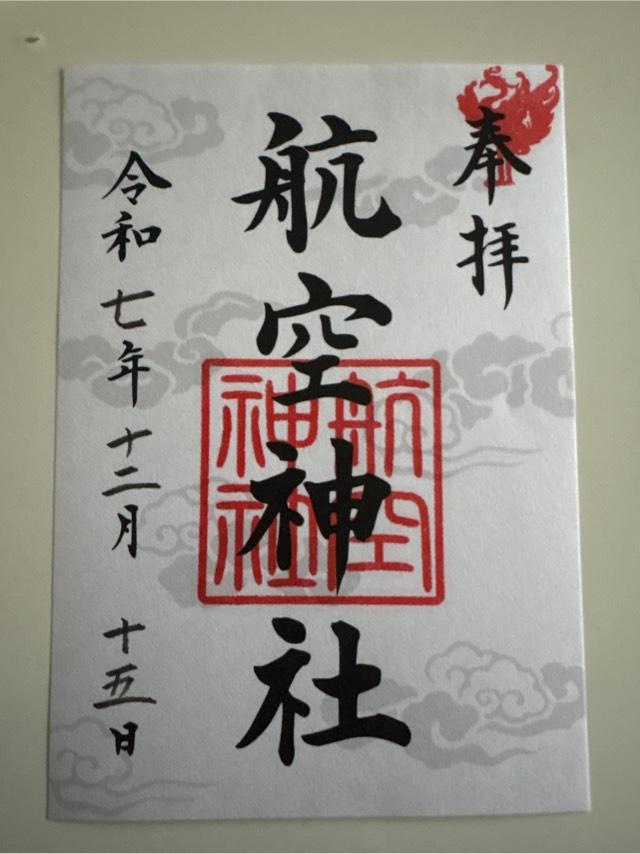 奉拝
航空神社
航空神社
令和七年十二月 十五日